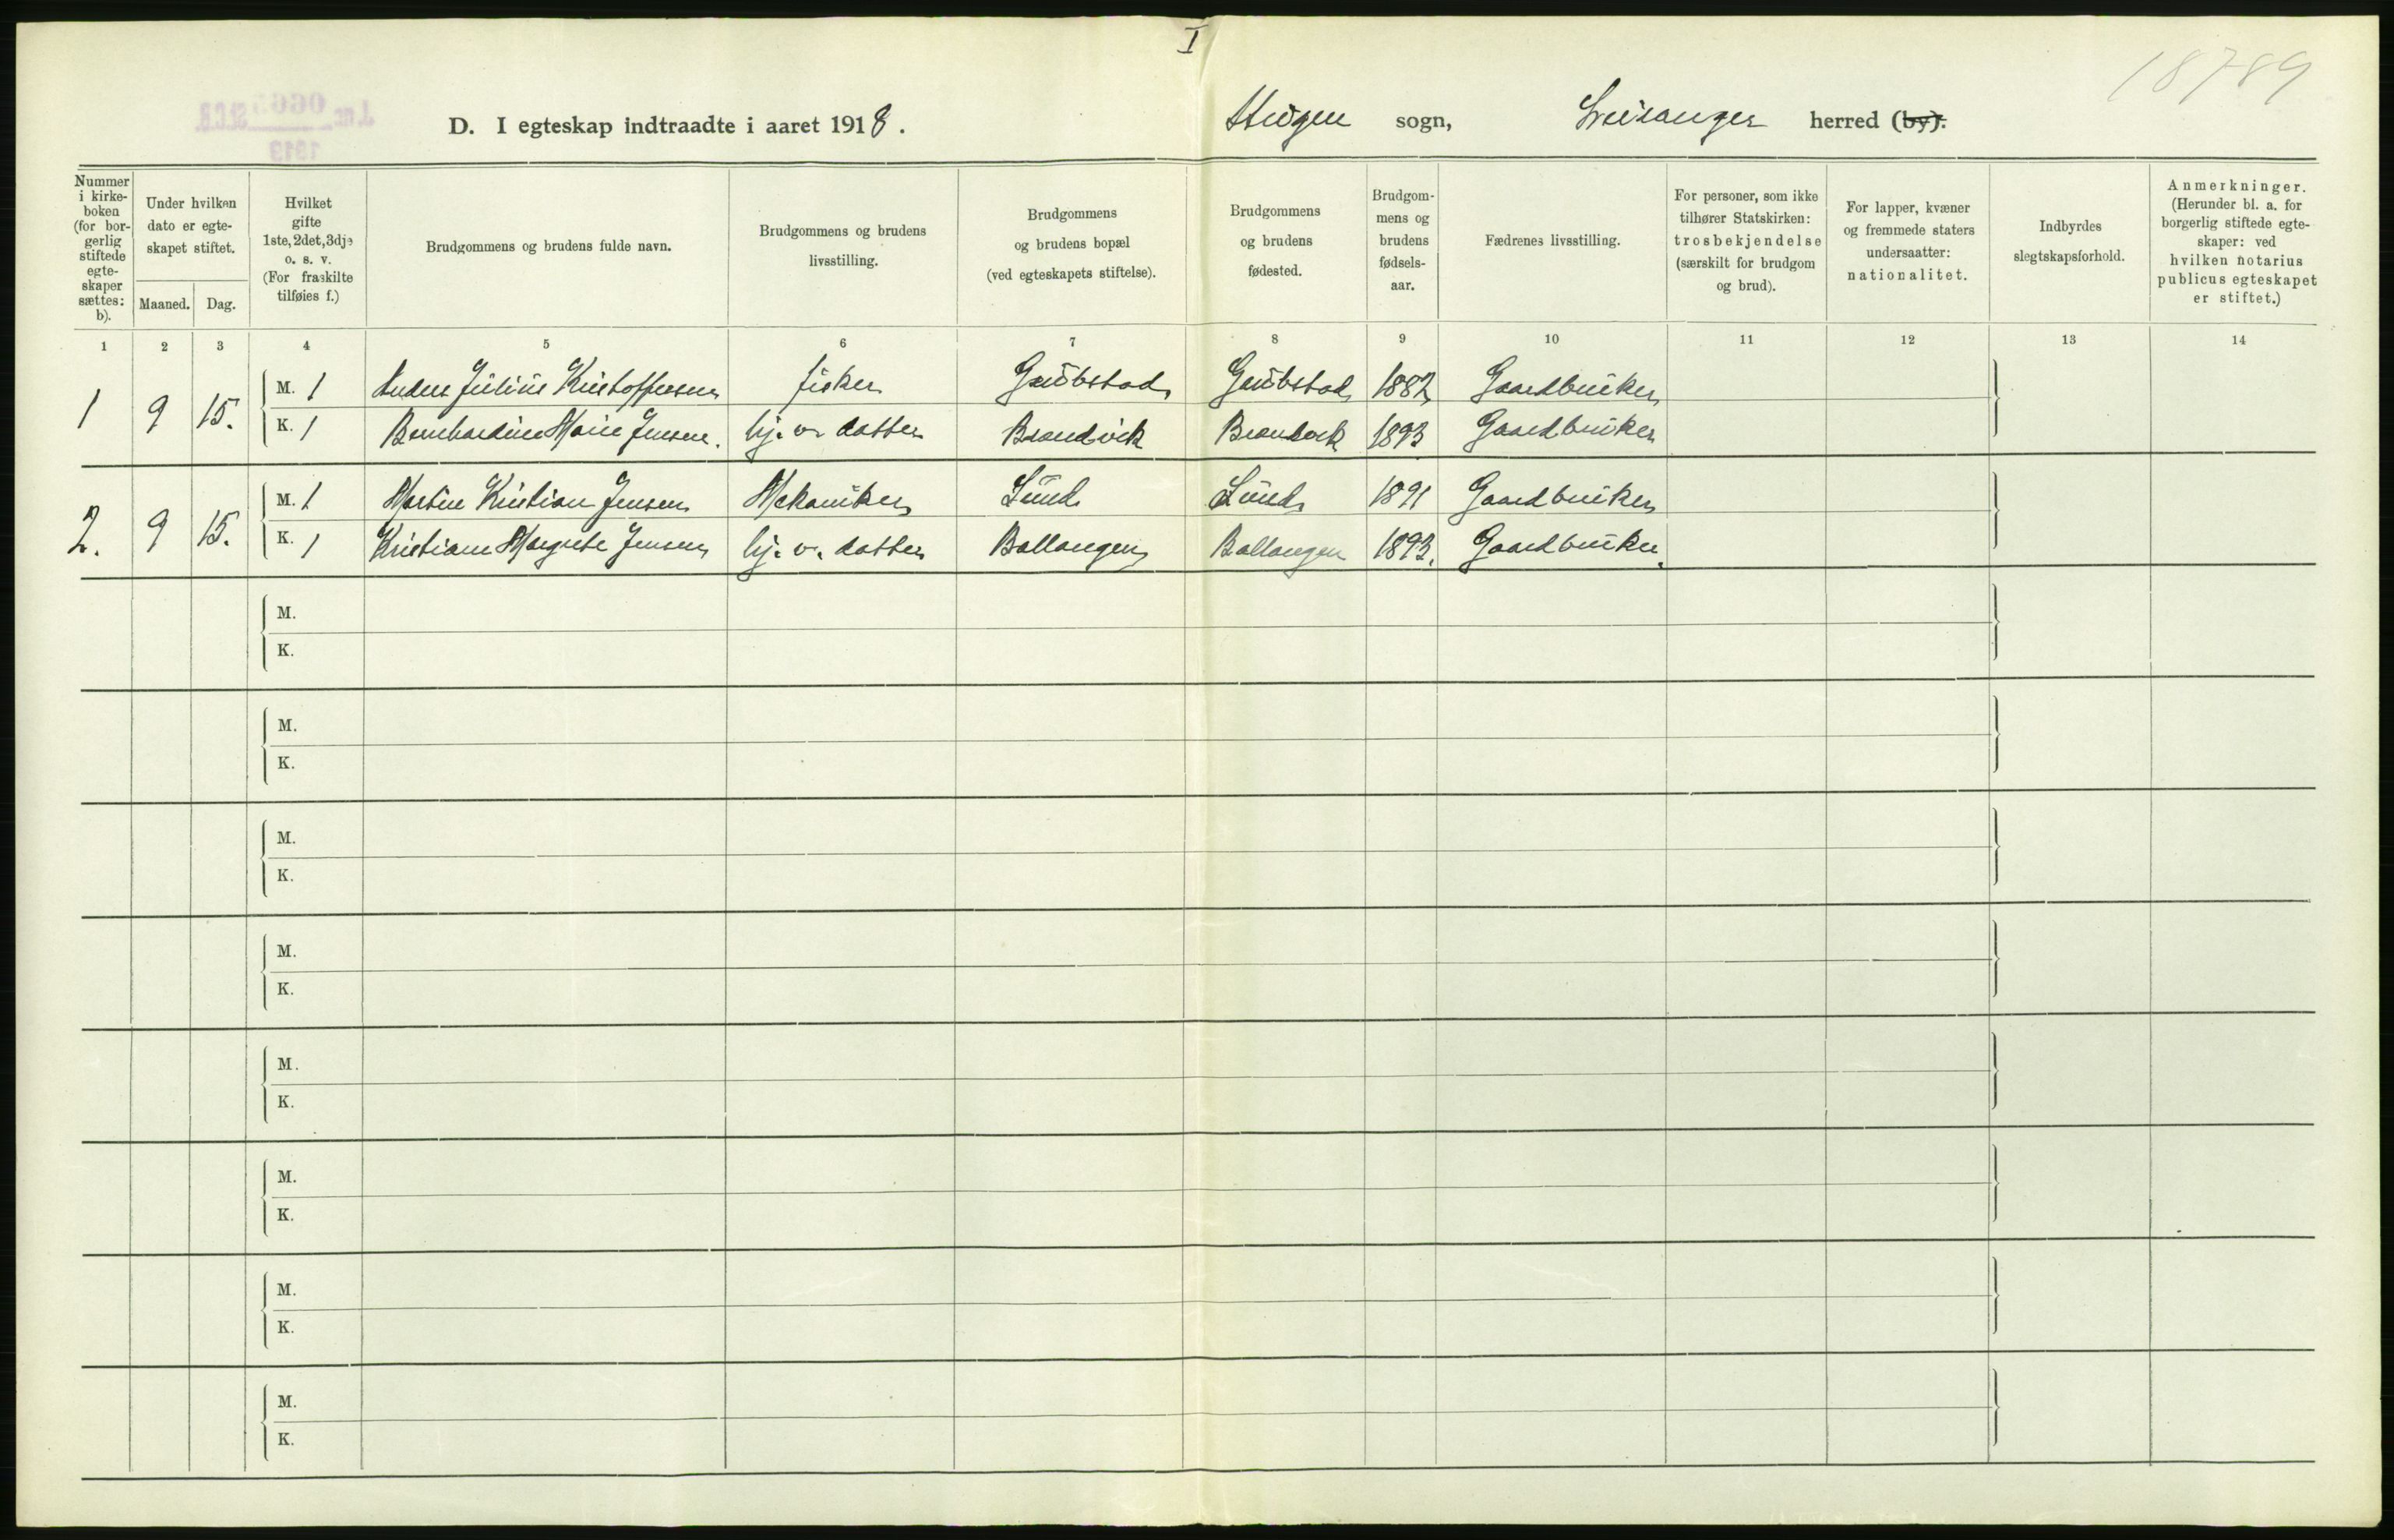 I
18789
D. I egteskap indtraadte i aaret 1918. Steigen sogn, Leiranger herred (by).
Nummer i kirkeboken (for borgerlig stiftede egteskaper sættes: b).
Under hvilken dato er egteskapet stiftet.
Maaned. Dag.
Hvilket gifte 1ste, 2det, 3dje o. s. v. (For fraskilte tilføies f.)
Brudgommens og brudens fulde navn.
Brudgommens og brudens livsstilling.
Brudgommens og brudens bopæl (ved egteskapets stiftelse).
Brudgommens og brudens fødested.
Brudgommens og brudens fødselsaar.
Fædrenes livsstilling.
For personer, som ikke tilhører Statskirken: trosbekjendelse (særskilt for brudgom og brud).
For lapper, kvæner og fremmede staters undersaatter: nationalitet.
Indbyrdes slegtskapsforhold.
Anmerkninger. (Herunder bl. a. for borgerlig stiftede egteskaper: ved hvilken notarius publicus egteskapet er stiftet.)
1 2 3 4 5 6 7 8 9 10 11 12 13 14
1 9 15. M. 1 Anders Julius Kristoffersen fisker Grübstad Grübstad 1882 Gaardbrüker
K. 1 Bernhardine Marie Jensen. hj. v. datter Brandvik Brandvik 1893 Gaardbrüker
2. 9 15. M. 1 Martin Kristian Jensen Mekaniker Lünd Lünd 1891 Gaardbrüker
K. 1 Kristiane Margrete Jensen hj. v. datter Ballangen Ballangen 1893. Gaardbrüker.
M.
K.
M.
K.
M.
K.
M.
K.
M.
K.
M.
K.
M.
K.
M.
K.